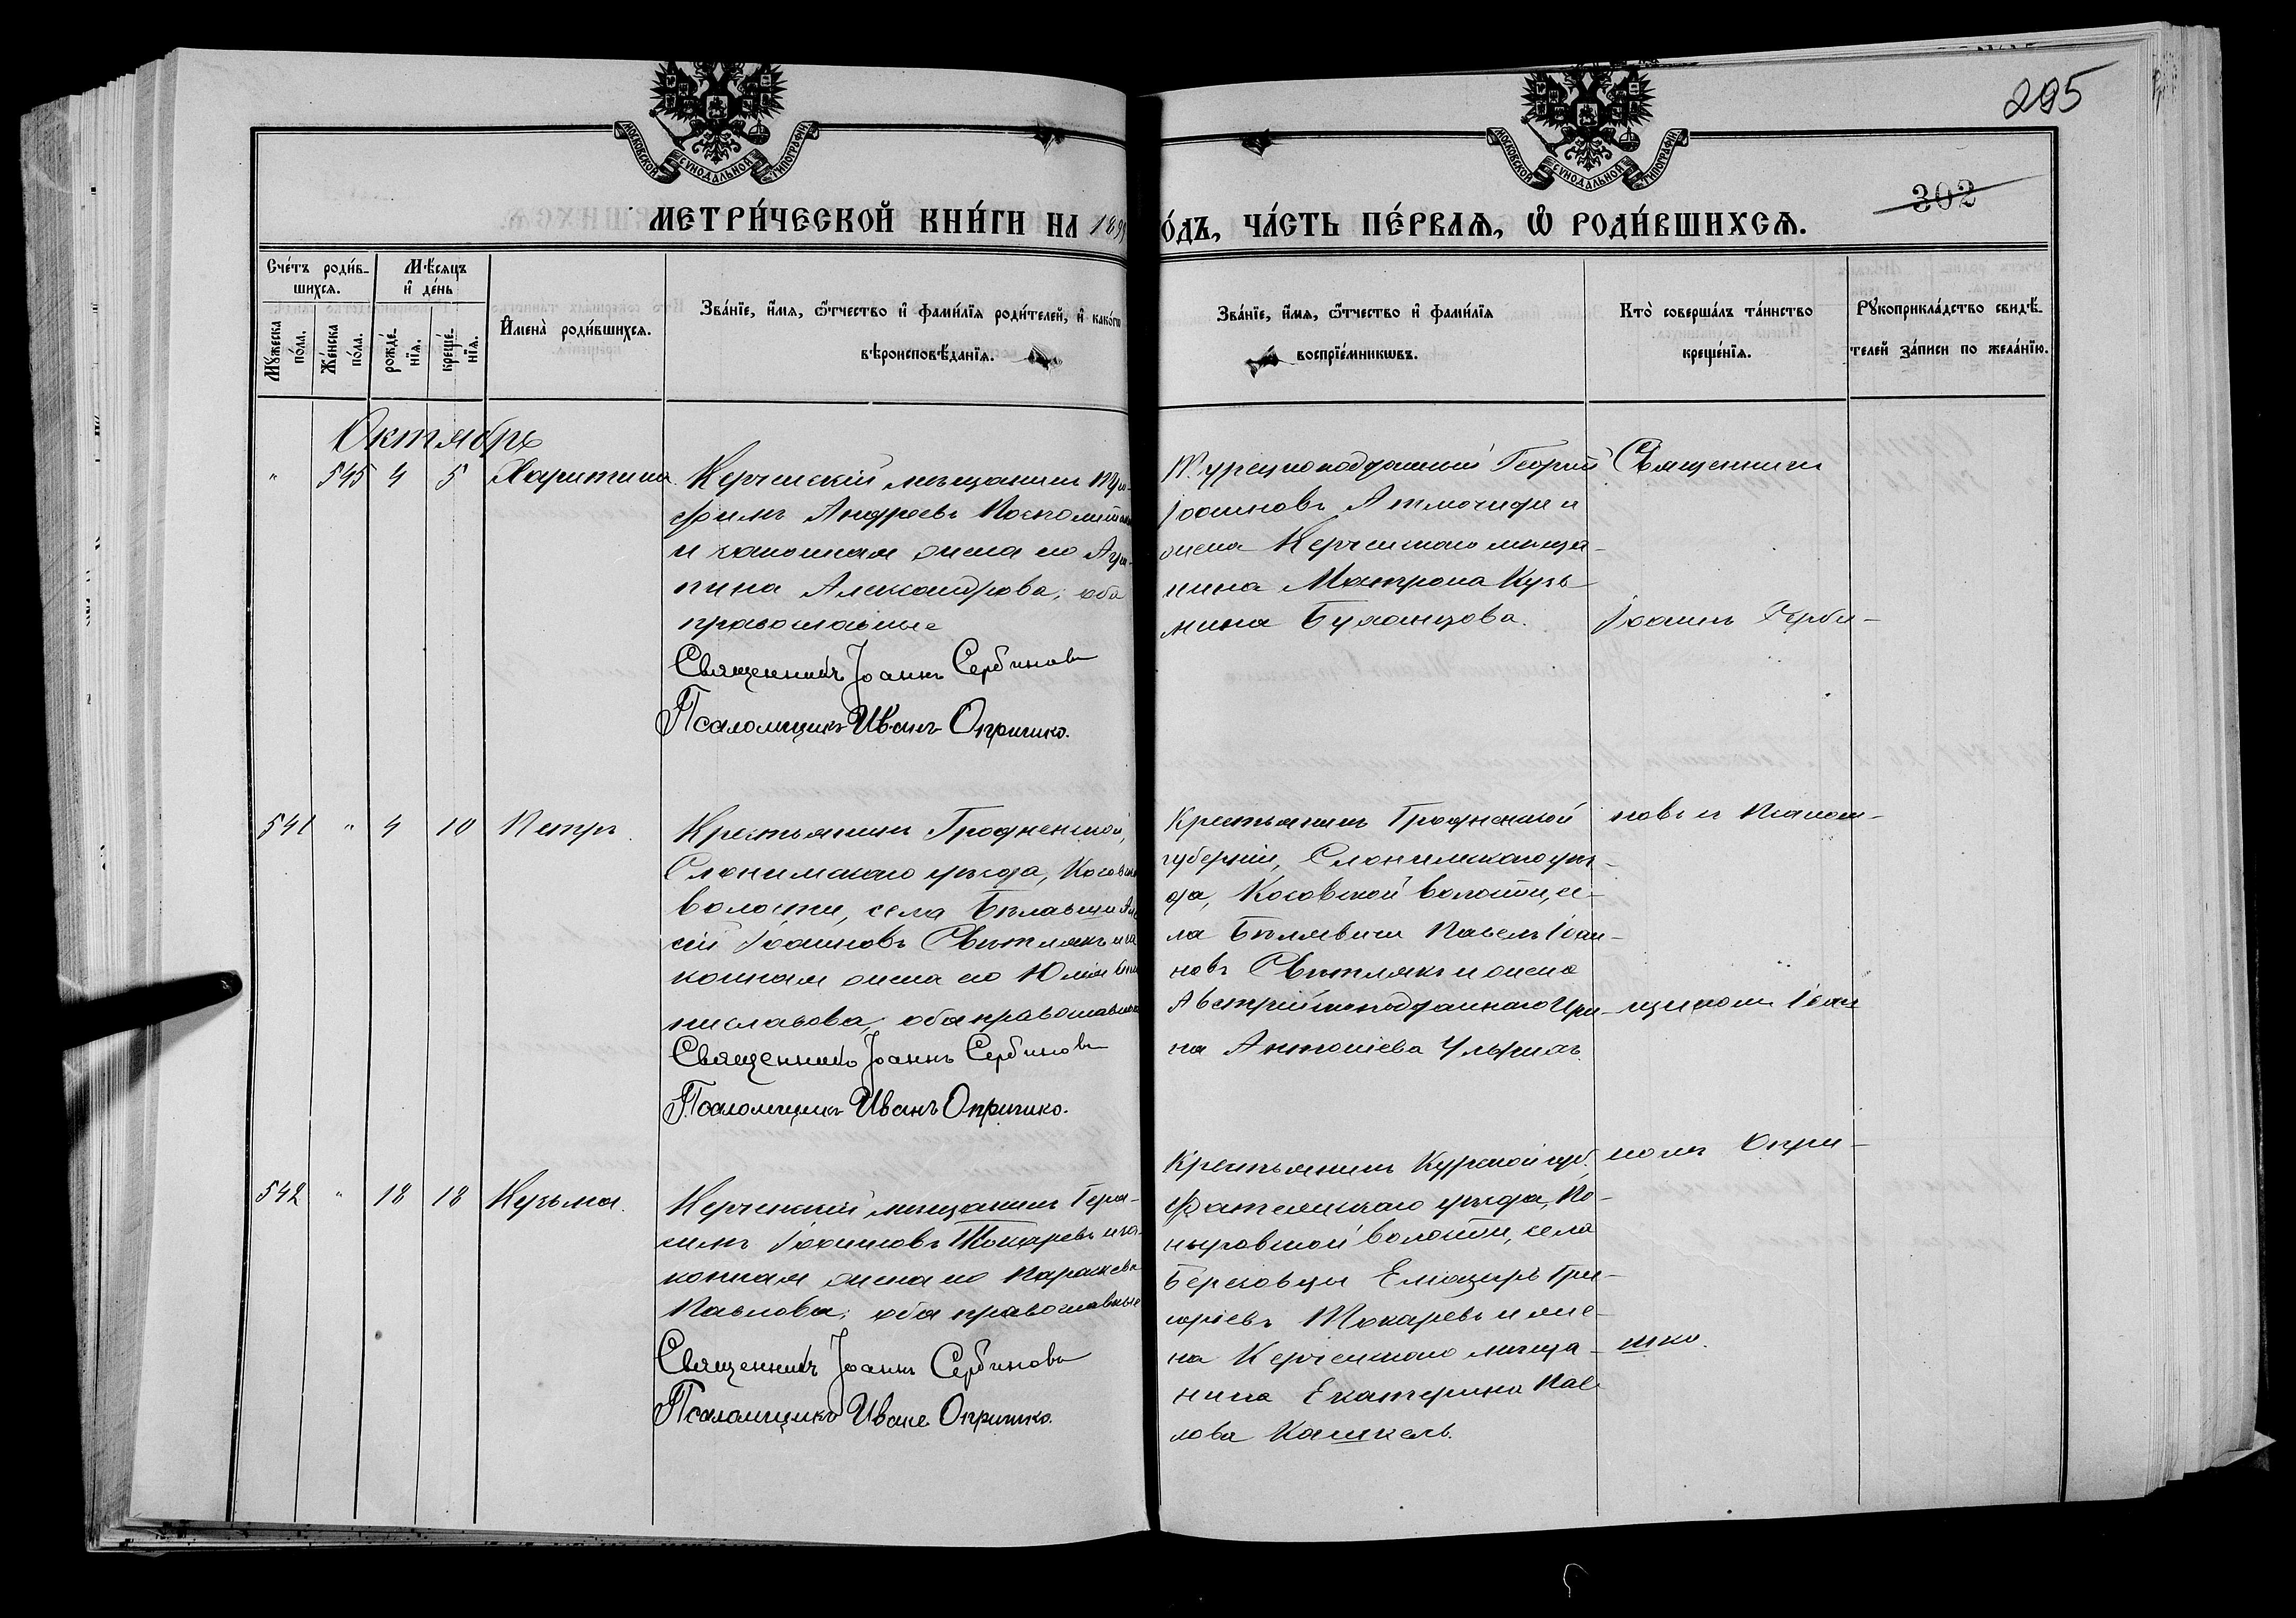 295
302
МОСКОВСКОЙ СУНОДАЛЬНОЙ ТИПОГРАФІИ
МОСКОВСКОЙ СУНОДАЛЬНОЙ ТИПОГРАФІИ
МЕТРИ́ЧЕСКОЙ КНИ́ГИ НА 1899
О́ДЪ, ЧА́СТЬ ПЕ́РВАЯ, Ѡ҆ РОДИ́ВШИХСѦ.
Сче́тъ роди́в-
шихсѧ.
Мꙋ́жеска
по́ла.
Же́нска
по́ла.
Мѣ́сѧцъ
и҆ де́нь
рожде́-
нїѧ.
креще́-
нїѧ.
И҆мена̀ роди́вшихсѧ.
Зва́нїе, и҆́мѧ, ѻ҆́тчество и҆ фами́лїѧ роди́телей, и҆ како́гѡ
вѣроисповѣ́данїѧ.
Зва́нїе, и҆́мѧ, ѻ҆́тчество и҆ фами́лїѧ
воспрїе́мникѡвъ.
Кто̀ соверша́лъ та́инство
креще́нїѧ.
Рꙋкоприкла́дство свидѣ́-
телей за́писи по жела́нїю.
Октябрь
" 545 4 5 Харитина
Керченскій мѣщанинъ Тро-
фимъ Андреевъ
и законная жена его Агри-
пина Александрова; оба
православные
Священникъ Іоаннъ Сербиновъ
Псаломщикъ Иванъ Опришко.
Турецкоподданный Георгій
Іоанновъ и
жена Керченскаго мѣща-
нина Матрона Кузь-
мина
Священникъ
Іоаннъ Серби-
541 " 4 10 Петръ.
Крестьянинъ Гродненской,
Слонимскаго уѣзда, Косовской
волости, села
сій Іоанновъ Свитлякъ и за
конная жена его Юлія
ниславова, оба православные
Священникъ Іоаннъ Сербиновъ
Псаломщикъ Иванъ Опришко.
Крестьянинъ Гродненской
губерніи, Слонимскаго уѣз-
да, Косовской волости, се-
ла Бѣлавичи Павелъ Іоан-
новъ Свитлякъ и жена
Австрійскоподданнаго Ири-
на Антоніева
новъ и Псалом-
щикомъ Іоан
542 " 18 18 Кузьма.
Керченскій мѣщанинъ Гера-
симъ Іоанновъ Токаревъ и за-
конная жена его Параскева
Павлова; оба православные
Священникъ Іоаннъ Сербиновъ
Псаломщикъ Иванъ Опришко.
Крестьянинъ Курской губ.
Фатежскаго уѣзда, По-
ныровской волости, села
Березовца Елеазаръ Гри-
горіевъ Токаревъ и же-
на Керченскаго мѣща-
нина Екатерина Пав
лова Кашкель.
номъ Опри-
шко.